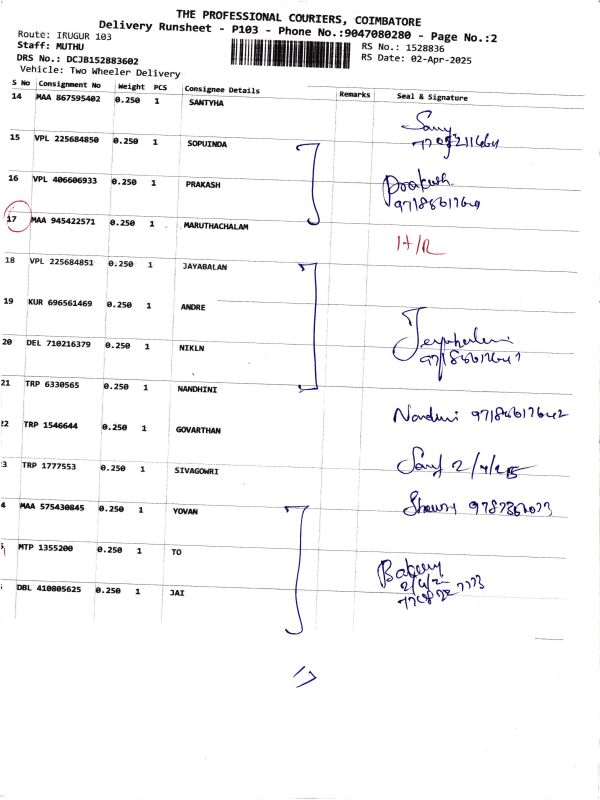 THE PROFESSIONAL COURIERS, COIMBATORE
Delivery Runsheet - P103 - Phone No.:9047080280 - Page No.:2
Route: IRUGUR 103 RS No.: 1528836
Staff: MUTHU RS Date: 02-Apr-2025
DRS No.: DCJB152883602
Vehicle: Two Wheeler Delivery
S No Consignment No Weight PCS Consignee Details Remarks Seal & Signature
14 MAA 867595402 0.250 1 SANTYHA
15 VPL 225684850 0.250 1 SOPUINDA
16 VPL 406606933 0.250 1 PRAKASH Prakash
17 MAA 945422571 0.250 1 MARUTHACHALAM H/R
18 VPL 225684851 0.250 1 JAYABALAN
19 KUR 696561469 0.250 1 ANDRE
20 DEL 710216379 0.250 1 NIKLN
21 TRP 6330565 0.250 1 NANDHINI
Nandini 97184617642
22 TRP 1546644 0.250 1 GOVARTHAN
3 TRP 1777553 0.250 1 SIVAGOWRI
4 MAA 575430845 0.250 1 YOVAN
MTP 1355200 0.250 1 TO
DBL 410805625 0.250 1 JAI